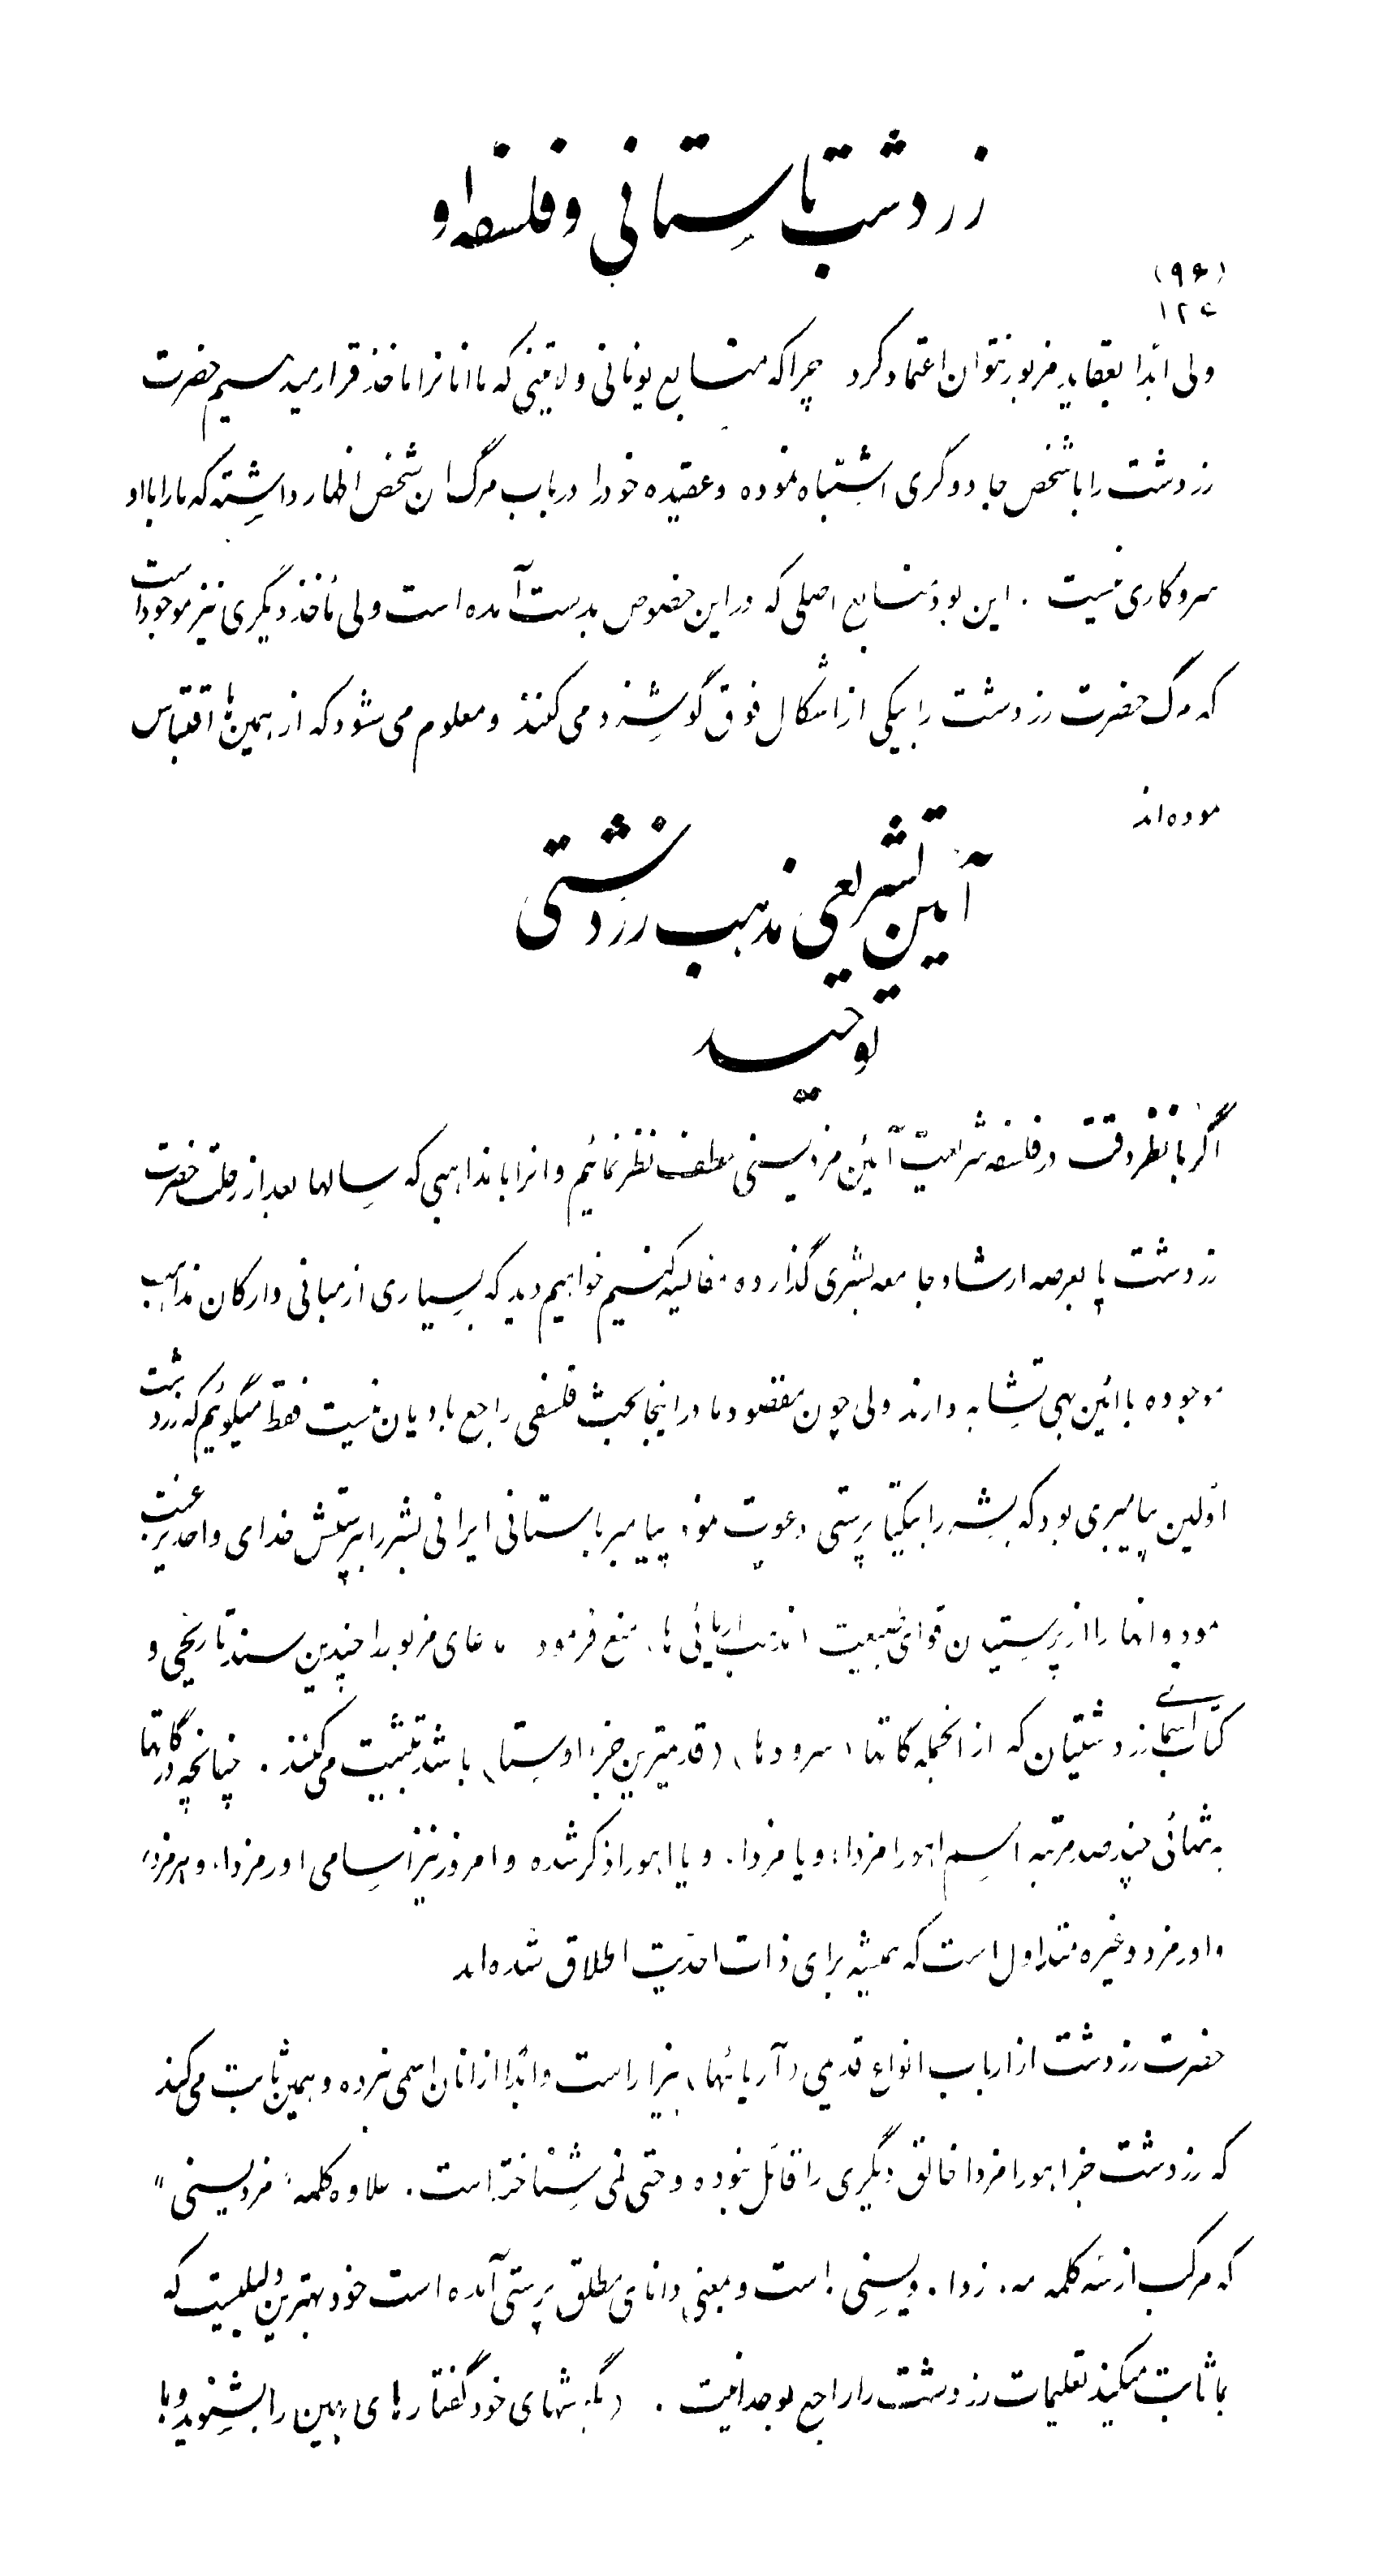 زردشت باستانی و فلسفه او
(۹۶)
۱۲۶
ولی ابداً بعقاید مزبور نتوان اعتماد کرد چرا که منابع یونانی و لاتینی که ما انانرا ماخذ قرار میدهیم حضرت
زردشت را با شخص جادوگری اشتباه نموده و عقیده خود را در باب مرگ ان شخص اظهار داشته که ما را با او
سر و کاری نیست . این بود منابع اصلی که در این خصوص بدست آمده است ولی مأخذ دیگری نیز موجود است
که مرگ حضرت زردشت را بیکی از اشکال فوق گوشزد می کنند و معلوم می شود که از همین ها اقتباس
نموده اند
آئین تشریعی مذهب زردشتی
توحید
اگر با نظر دقت در فلسفه شریعت آئین مزدیسنی عطف نظر نمائیم و انرا با مذاهبی که سالها بعد از رحلت حضرت
زردشت پا بعرصه ارشاد جامعه بشری گذارده مقایسه کنیم خواهیم دید که بسیاری از مبانی و ارکان مذاهب
موجوده با آئین بهی تشابه دارند ولی چون مقصود ما در اینجا بحث فلسفی راجع بادیان نیست فقط میگوئیم که زردشت
اولین پیامبری بود که بشر را بیکتا پرستی دعوت نمود پیامبر باستانی ایرانی بشر را بپرستش خدای واحد ترغیب
نمود و انها را از پرستیدن قوای طبیعت (مذهب اریائی ها) منع فرمود مدعای مزبور را چندین سند تاریخی و
کتاب اسمانی زردشتیان که از انجمله گاتها (سرودها) (قدیمترین جزء اوستا) باشد تثبیت می کنند . چنانچه در گاتها
به تنهائی چند صد مرتبه اسم اهورا مزدا؛ و یا مزدا. و یا اهورا ذکر شده و امروز نیز اسامی اورمزدا، و هرمزد،
و اورمزد و غیره متداول است که همیشه برای ذات احدیت اطلاق شده اند
حضرت زردشت از ارباب انواع قدیمی (آریائیها) بیزار است و ابداً از انان اسمی نبرده و همین ثابت می کند
که زردشت جز اهورا مزدا خالق دیگری را قائل نبوده و حتی نمی شناخته است . علاوه کلمه "مزدیسنی"
که مرکب از سه کلمه مه . زدا . و یسنی . است و بمعنی دانای مطلق پرستی آمده است خود بهترین دلیلیست که
بما ثابت میکند تعلیمات زردشت را راجع بوحدانیت . (بگوشهای خود گفتارهای بهین را بشنوید و با